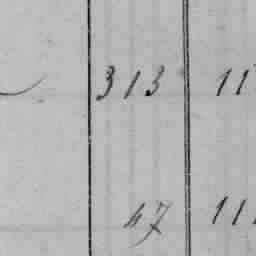 313 11
47 11